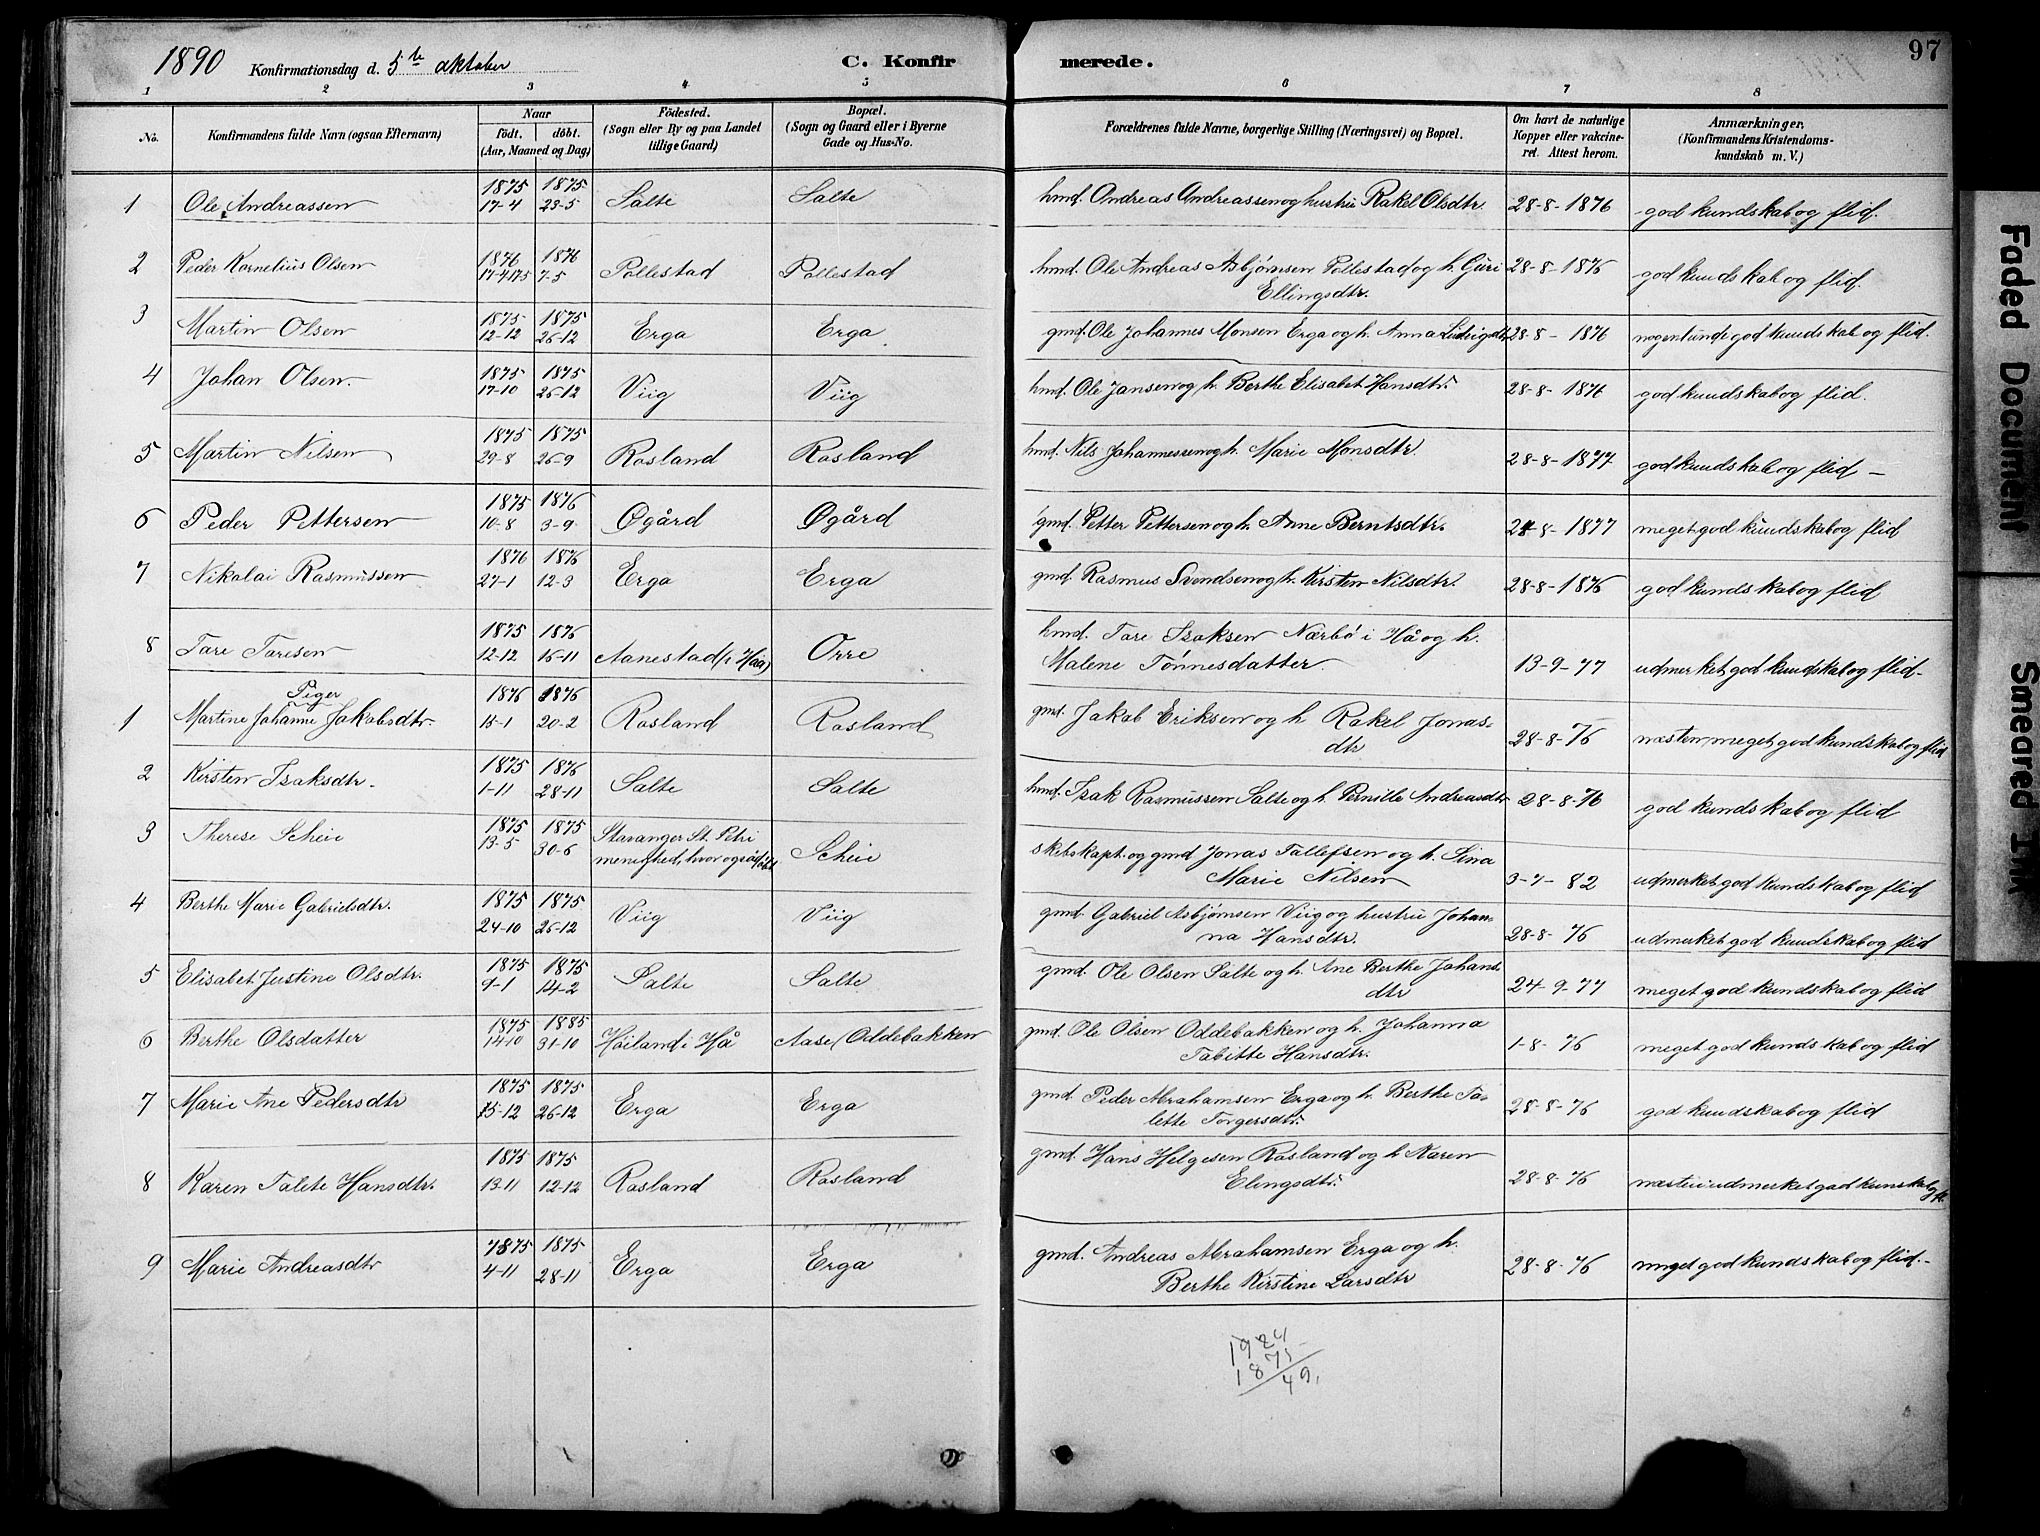 1890 Konfirmationsdag d. 5te oktober C. Konfir merede. 97
1 2 3 4 5 6 7 8
No. Konfirmandens fulde Navn (ogsaa Efternavn) Naar födt. döbt. (Aar, Maaned og Dag) Födested. (Sogn eller By og paa Landet tillige Gaard) Bopæl. (Sogn og Gaard eller i Byerne Gade og Hus-No. Forældrenes fulde Navne, borgerlige Stilling (Næringsvei) og Bopæl. Om havt de naturlige Kopper eller vakcineret. Attest herom. Anmærkninger. (Konfirmandens Kristendomskundskab m. V.)
1 Ole Andreassen 1875 17-4 1875 23-5 Salte Salte hmd. Andreas Andreassen og hustru Rakel Olsdtr. 28-8-1876 god kundskab og flid.
2 Peder Kornelius Olsen 1876 1876 7-5 Pollestad Pollestad hmd. Ole Andreas Asbjørnsen Pollestad og h. Guri 28-8-1876 god kundskab og flid.
Ellingsdtr.
3 Martin Olsen 1875 12-12 1875 26-12 Erga Erga gmd. Ole Johannes Monsen Erga og h. Anna Ludvigsdtr 28-8-1876 nogenlunde god kundskab og flid.
4 Johan Olsen. 1875 17-10 1875 26-12 Viig Viig hmd. Ole Jansen og h. Berthe Elisabet Hansdtr. 28-8-1876 god kundskab og flid.
5 Martin Nilsen 1875 29-8 1875 26-9 Rosland Rosland hmd. Nils Johannessen og h. Marie Monsdtr. 28-8-1877 god kundskab og flid –
6 Peder Pettersen 1875 10-8 1876 3-9 Øgård Øgård gmd. Petter Pettersen og h. Anne Berntsdtr. 24-8-1877 meget god kundskab og flid
7 Nikolai Rasmussen 1876 27-1 1876 12-3 Erga Erga gmd. Rasmus Svendsen og h. Kirsten Nilsdtr. 28-8-1876 god kundskab og flid
8 Tore Toresen 1875 12-12 1876 16-11 Aanestad (i Haa) Orre hmd. Tore Isaksen Nærbö i Hå og h.
Malene Tönnesdatter 13-9-77 udmerket god kundskab og flid-
Piger
1 Martine Johanne Jakobsdtr. 1876 15-1 1876 20-2 Rosland Rosland gmd. Jakob Eriksen og h Rakel Jonas-
dtr 28-8-76 næsten meget god kundskab og flid
2 Kirsten Isaksdtr. 1875 1-11 1876 28-11 Salte Salte hmd. Isak Rasmussen Salte og h. Pernille Andreasdtr 28-8-76 god kundskab og flid
3 Therese Scheie 1875 13-5 1875 30-6 Stavanger St. Petri menighed, hvor også döbt Scheie skibskapt. og gmd Jonas Tollefsen og h. Sina
Marie Nilsen 3-7-82 udmerket god kundskab og flid
4 Berthe Marie Gabrielsdtr. 1875 24-10 1875 26-12 Viig Viig gmd. Gabriel Asbjørnsen Viig og hustru Johan-
na Hansdtr. 28-8-76 udmerket god kundskab og flid
5 Elisabet Justine Olsdtr. 1875 9-1 1875 14-2 Salte Salte gmd. Ole Olsen Salte og h. Ane Berthe Johans-
dtr 24-9-77 meget god kundskab og flid
6 Berthe Olsdatter 1875 14-10 1885 31-10 Höiland i Hå Aase (Oddebakken gmd. Ole Olsen Oddebakken og h. Johanna
Tabitte Hansdtr. 1-8-76 meget god kundskab og flid
7 Marie Ane Pedersdtr 1875 15-12 1875 26-12 Erga Erga gmd. Peder Abrahamsen Erga og h. Berthe Ta-
lette Torgersdtr. 28-8-76 god kundskab og flid
8 Karen Talete Hansdtr. 1875 13-11 1875 12-12 Rosland Rosland gmd. Hans Helgesen Rosland og h Karen
Elingsdtr. 28-8-76 næsten udmerket god kunskab og fl.
9 Marie Andreasdtr 1875 4-11 1875 28-11 Erga Erga gmd. Andreas Abrahamsen Erga og h.
Berthe Kirstine Larsdtr 28-8-76 meget god kundskab og flid.-
1924
1875
49.
Faded Document
Smeared Ink